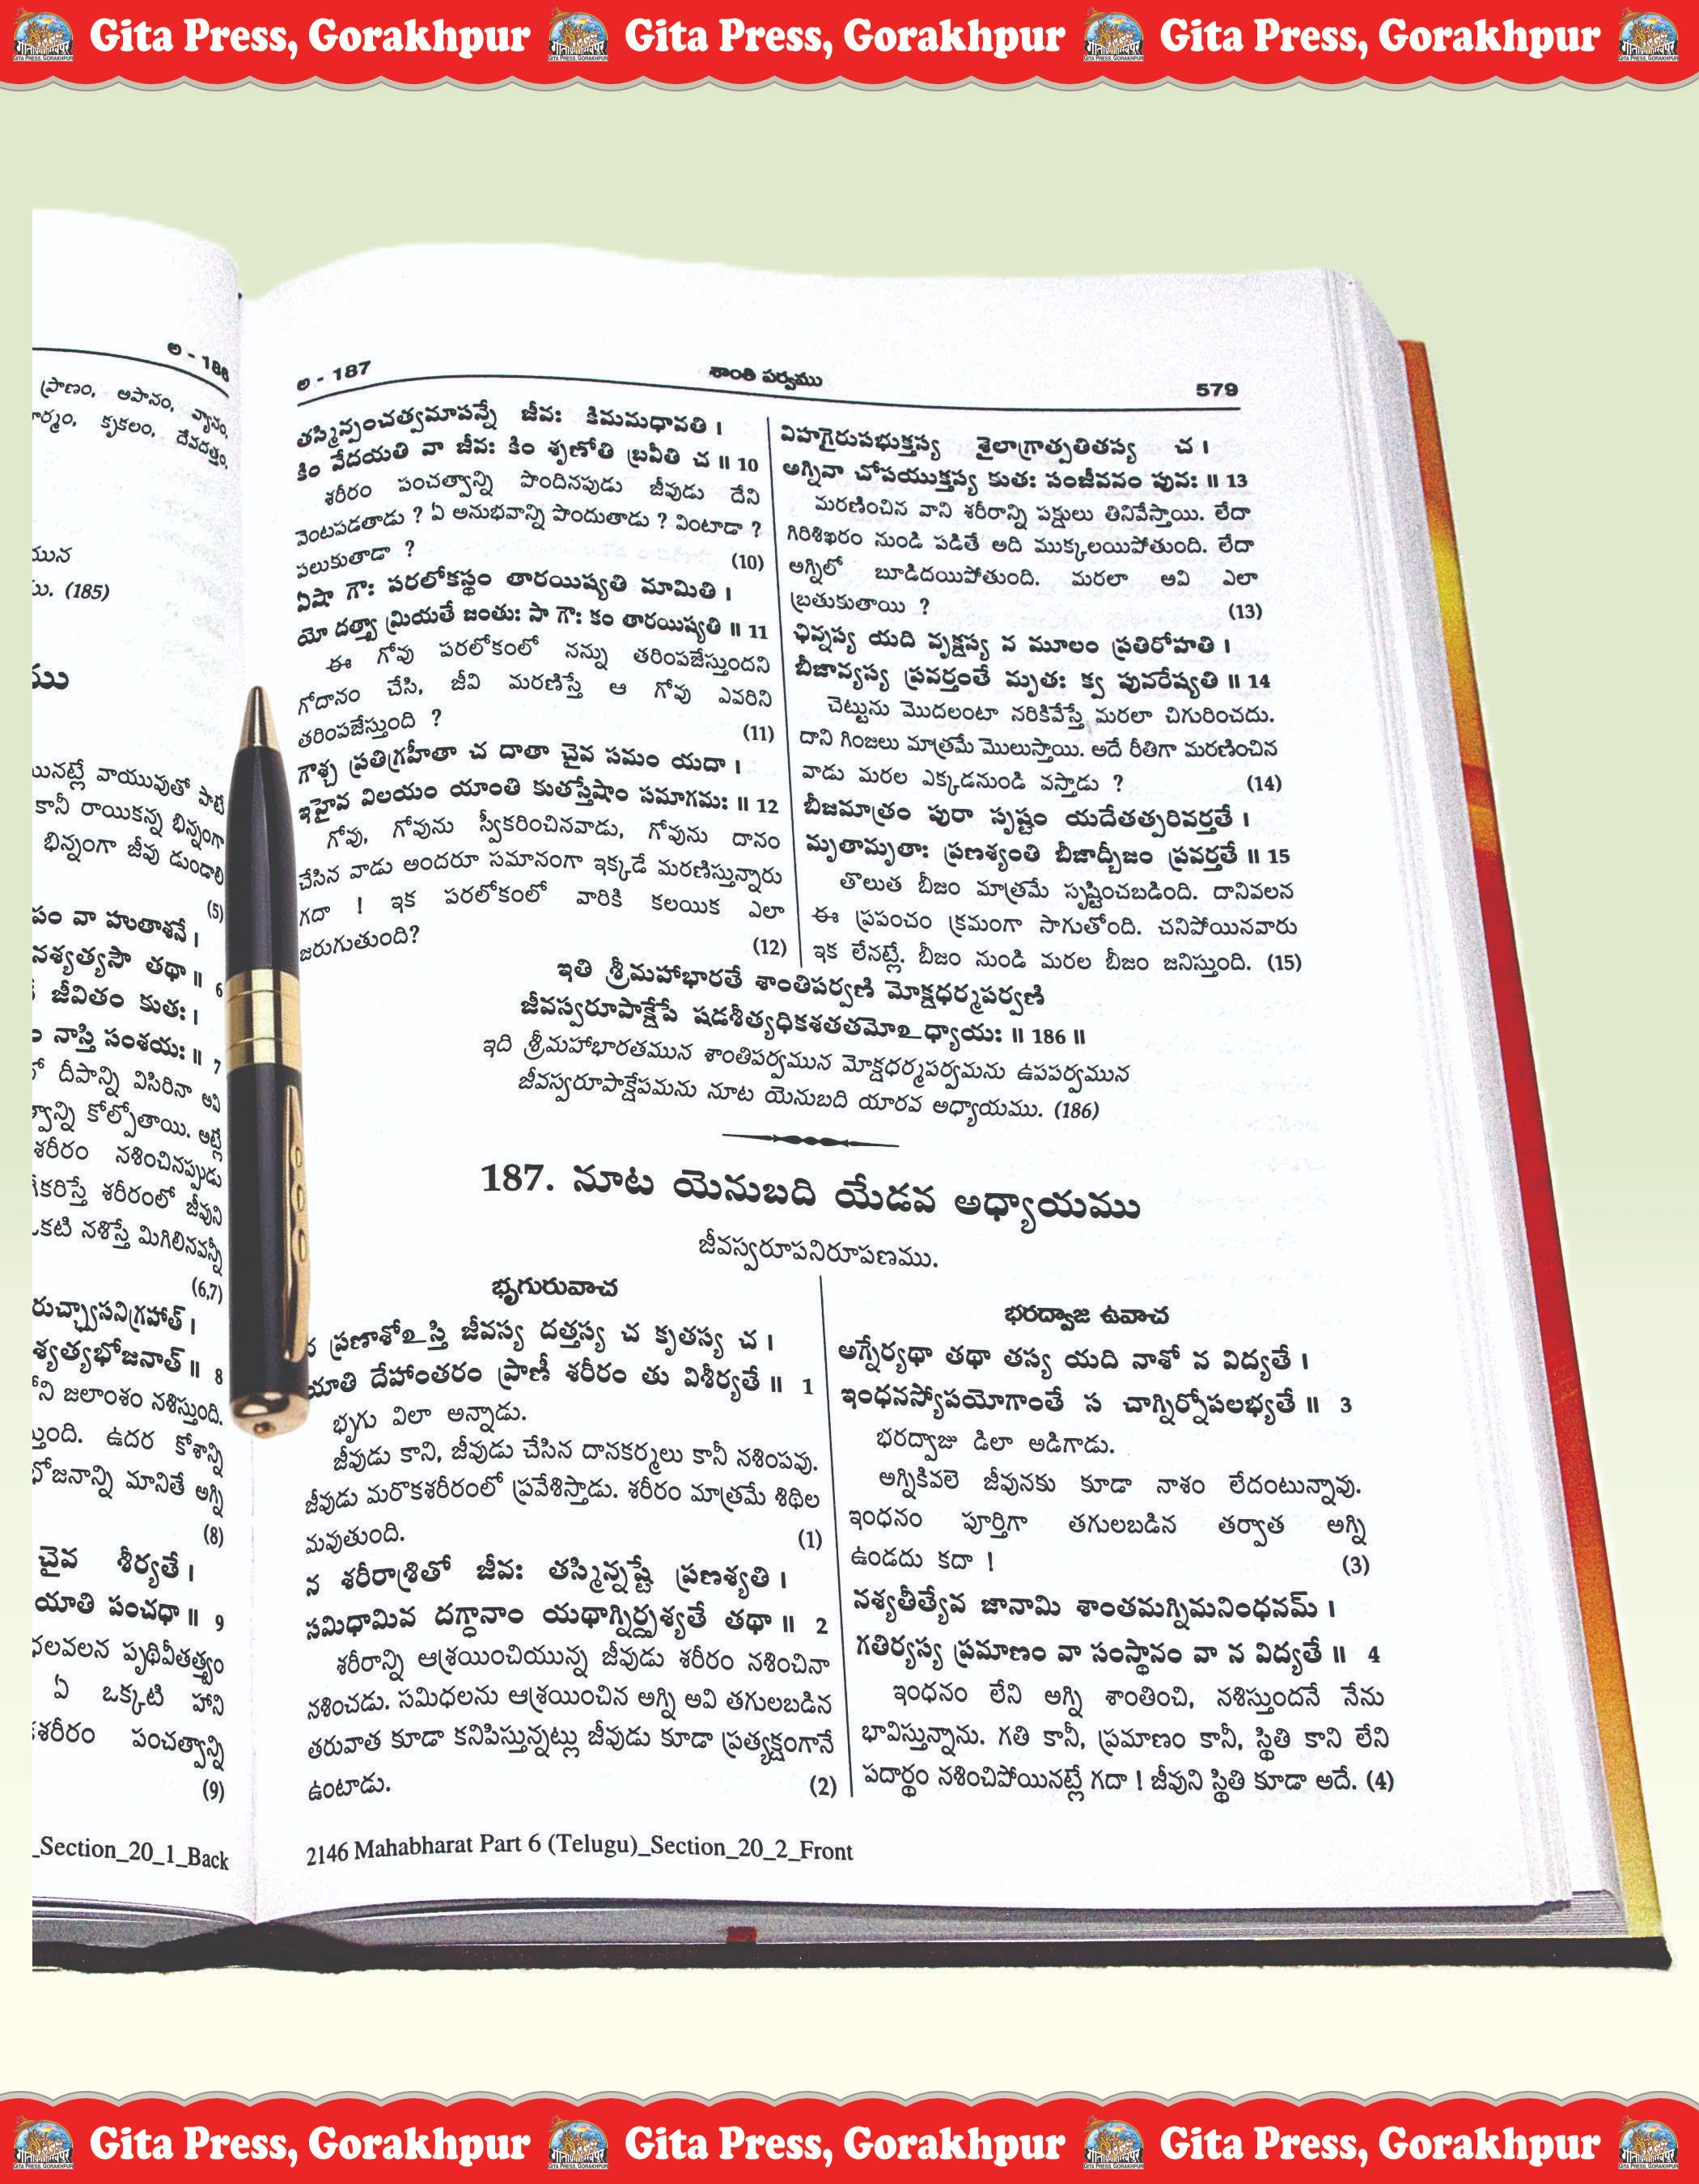 Gita Press, Gorakhpur Gita Press, Gorakhpur Gita Press, Gorakhpur
అ - 186
ప్రాణం, అపానం, వ్యానం,
కృకలం, దేవదత్తం,
యున
(185)
ము
యినట్లే వాయువుతో పాటు
కానీ రాయికన్న భిన్నంగా
భిన్నంగా జీవు డుండాలి
(5)
పం వా హుతాశనే ।
నశ్యత్యసౌ తథా ॥ 6
జీవితం కుతః ।
నాస్తి సంశయః ॥ 7
దీపాన్ని విసిరినా అవి
కోల్పోతాయి. అట్లే
శరీరం నశించినప్పుడు
కరిస్తే శరీరంలో జీవుని
ఒకటి నశిస్తే మిగిలినవన్నీ
(6,7)
రుచ్ఛ్వాసనిగ్రహాత్ ।
శ్యత్యభోజనాత్ ॥ 8
ని జలాంశం నశిస్తుంది.
స్తుంది. ఉదర కోశాన్ని
భోజనాన్ని మానితే అగ్ని
(8)
చైవ శీర్యతే ।
యాతి పంచధా ॥ 9
పృథివీతత్త్వం
ఏ ఒక్కటి హాని
శరీరం పంచత్వాన్ని
(9)
_Section_20_1_Back
అ - 187 శాంతి పర్వము 579
తస్మిన్పంచత్వమాపన్నే జీవః కిమమధావతి ।
కిం వేదయతి వా జీవః కిం శృణోతి బ్రవీతి చ ॥ 10
శరీరం పంచత్వాన్ని పొందినపుడు జీవుడు దేని
వెంటపడతాడు ? ఏ అనుభవాన్ని పొందుతాడు ? వింటాడా ?
పలుకుతాడా ? (10)
ఏషా గౌః పరలోకస్థం తారయిష్యతి మామితి ।
యో దత్త్వా మ్రియతే జంతుః సా గౌః కం తారయిష్యతి ॥ 11
ఈ గోవు పరలోకంలో నన్ను తరింపజేస్తుందని
గోదానం చేసి, జీవి మరణిస్తే ఆ గోవు ఎవరిని
తరింపజేస్తుంది ? (11)
గౌశ్చ ప్రతిగ్రహీతా చ దాతా చైవ సమం యదా ।
ఇహైవ విలయం యాంతి కుతస్తేషాం సమాగమః ॥ 12
గోవు, గోవును స్వీకరించినవాడు, గోవును దానం
చేసిన వాడు అందరూ సమానంగా ఇక్కడే మరణిస్తున్నారు
గదా ! ఇక పరలోకంలో వారికి కలయిక ఎలా
జరుగుతుంది? (12)
విహగైరుపభుక్తస్య శైలాగ్రాత్పతితస్య చ ।
అగ్నినా చోపయుక్తస్య కుతః సంజీవనం పునః ॥ 13
మరణించిన వాని శరీరాన్ని పక్షులు తినివేస్తాయి. లేదా
గిరిశిఖరం నుండి పడితే అది ముక్కలయిపోతుంది. లేదా
అగ్నిలో బూడిదయిపోతుంది. మరలా అవి ఎలా
బ్రతుకుతాయి ? (13)
ఛిన్నస్య యది వృక్షస్య న మూలం ప్రతిరోహతి ।
బీజాన్యస్య ప్రవర్తంతే మృతః క్వ పునరేష్యతి ॥ 14
చెట్టును మొదలంటా నరికివేస్తే మరలా చిగురించదు.
దాని గింజలు మాత్రమే మొలుస్తాయి. అదే రీతిగా మరణించిన
వాడు మరల ఎక్కడనుండి వస్తాడు ? (14)
బీజమాత్రం పురా సృష్టం యదేతత్పరివర్తతే ।
మృతామృతాః ప్రణశ్యంతి బీజాద్బీజం ప్రవర్తతే ॥ 15
తొలుత బీజం మాత్రమే సృష్టించబడింది. దానివలన
ఈ ప్రపంచం క్రమంగా సాగుతోంది. చనిపోయినవారు
ఇక లేనట్లే. బీజం నుండి మరల బీజం జనిస్తుంది. (15)
ఇతి శ్రీమహాభారతే శాంతిపర్వణి మోక్షధర్మపర్వణి
జీవస్వరూపాక్షేపే షడశీత్యధికశతతమోఽధ్యాయః ॥ 186 ॥
ఇది శ్రీమహాభారతమున శాంతిపర్వమున మోక్షధర్మపర్వమను ఉపపర్వమున
జీవస్వరూపాక్షేపమను నూట యెనుబది యారవ అధ్యాయము. (186)
187. నూట యెనుబది యేడవ అధ్యాయము
జీవస్వరూపనిరూపణము.
భృగురువాచ
న ప్రణాశోఽస్తి జీవస్య దత్తస్య చ కృతస్య చ ।
యాతి దేహాంతరం ప్రాణీ శరీరం తు విశీర్యతే ॥ 1
భృగు విలా అన్నాడు.
జీవుడు కాని, జీవుడు చేసిన దానకర్మలు కానీ నశింపవు.
జీవుడు మరొకశరీరంలో ప్రవేశిస్తాడు. శరీరం మాత్రమే శిథిల
మవుతుంది. (1)
న శరీరాశ్రితో జీవః తస్మిన్నష్టే ప్రణశ్యతి ।
సమిధామివ దగ్ధానాం యథాగ్నిర్దృశ్యతే తథా ॥ 2
శరీరాన్ని ఆశ్రయించియున్న జీవుడు శరీరం నశించినా
నశించడు. సమిధలను ఆశ్రయించిన అగ్ని అవి తగులబడిన
తరువాత కూడా కనిపిస్తున్నట్లు జీవుడు కూడా ప్రత్యక్షంగానే
ఉంటాడు. (2)
భరద్వాజ ఉవాచ
అగ్నేర్యథా తథా తస్య యది నాశో న విద్యతే ।
ఇంధనస్యోపయోగాంతే స చాగ్నిర్నోపలభ్యతే ॥ 3
భరద్వాజు డిలా అడిగాడు.
అగ్నికివలె జీవునకు కూడా నాశం లేదంటున్నావు.
ఇంధనం పూర్తిగా తగులబడిన తర్వాత అగ్ని
ఉండదు కదా ! (3)
నశ్యతీత్యేవ జానామి శాంతమగ్నిమనింధనమ్ ।
గతిర్యస్య ప్రమాణం వా సంస్థానం వా న విద్యతే ॥ 4
ఇంధనం లేని అగ్ని శాంతించి, నశిస్తుందనే నేను
భావిస్తున్నాను. గతి కానీ, ప్రమాణం కానీ, స్థితి కాని లేని
పదార్థం నశించిపోయినట్లే గదా ! జీవుని స్థితి కూడా అదే. (4)
2146 Mahabharat Part 6 (Telugu)_Section_20_2_Front
Gita Press, Gorakhpur Gita Press, Gorakhpur Gita Press, Gorakhpur